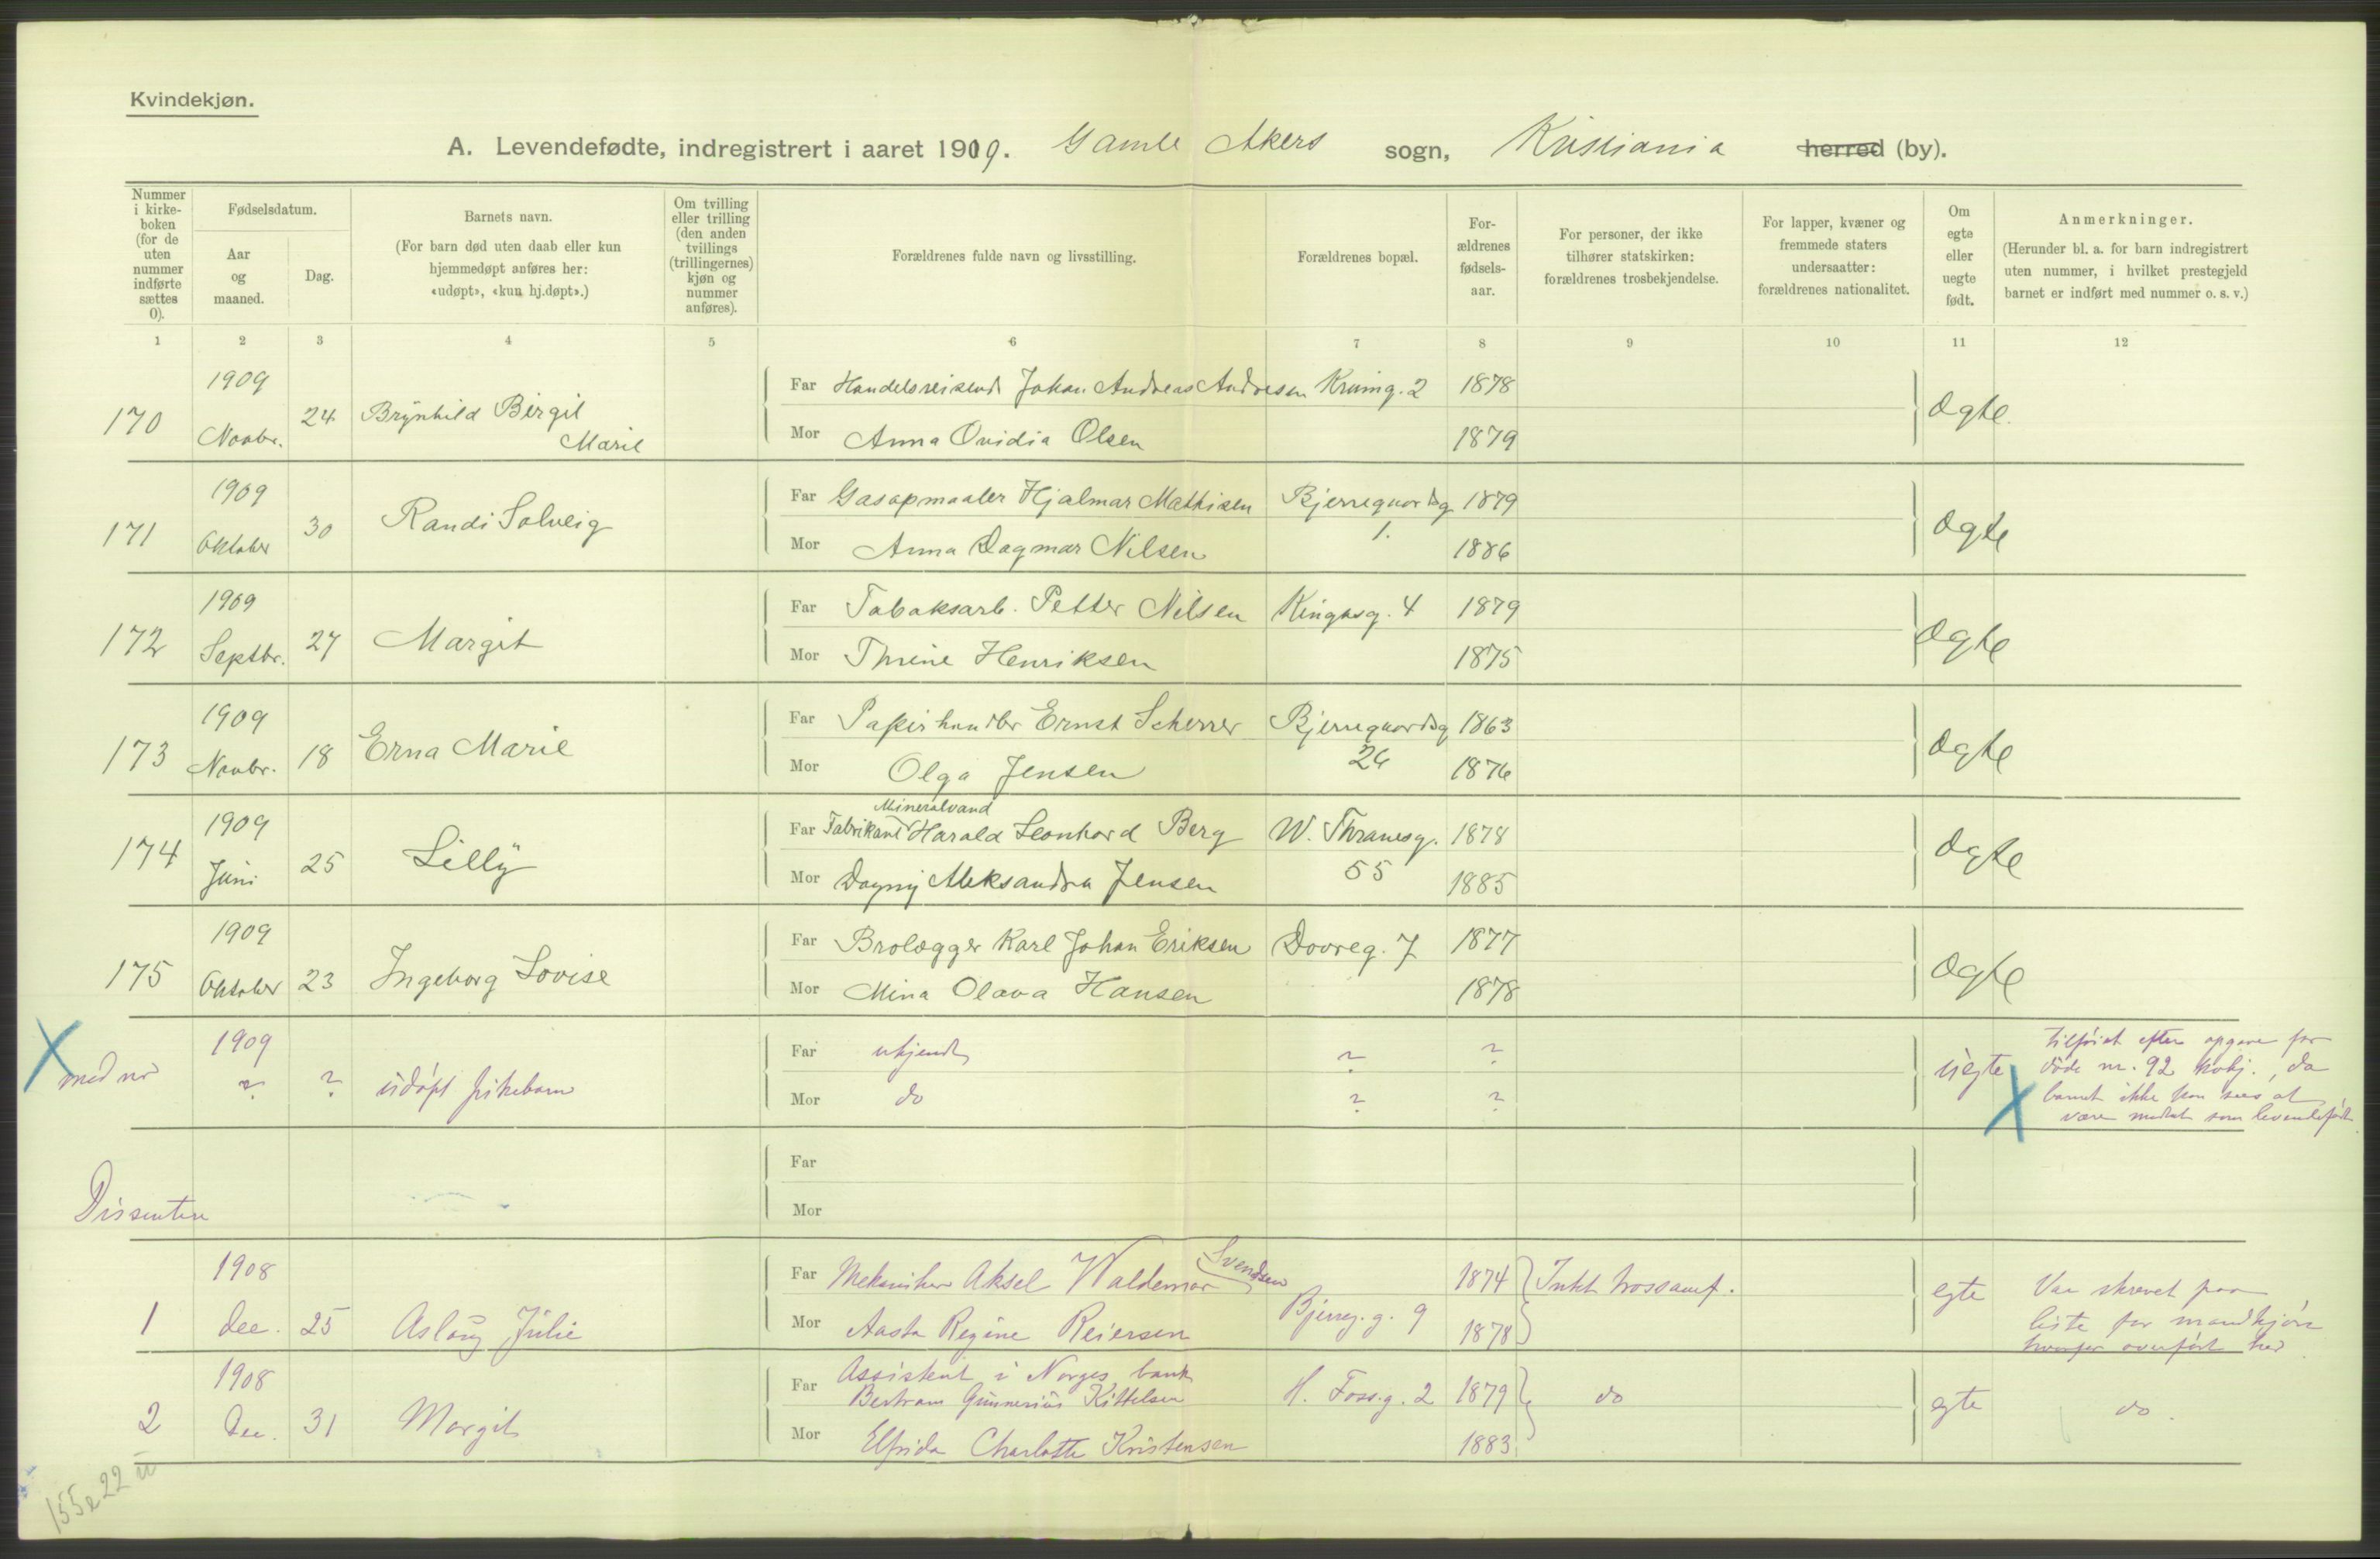 Kvindekjøn.
A. Levendefødte, indregistrert i aaret 1909. Gamle Akers sogn, Kristiania herred (by).
Nummer i kirkeboken (for de uten nummer indførte sættes 0).
Fødselsdatum.
Aar og maaned.
Dag.
Barnets navn.
(For barn død uten daab eller kun hjemmedøpt anføres her: «udøpt», «kun hj.døpt».)
Om tvilling eller trilling (den anden tvillings (trillingernes) kjøn og nummer anføres).
Forældrenes fulde navn og livsstilling.
Forældrenes bopæl.
Forældrenes fødselsaar.
For personer, der ikke tilhører statskirken: forældrenes trosbekjendelse.
For lapper, kvæner og fremmede staters undersaatter: forældrenes nationalitet.
Om egte eller uegte født.
Anmerkninger.
(Herunder bl. a. for barn indregistrert uten nummer, i hvilket prestegjeld barnet er indført med nummer o. s. v.)
1 2 3 4 5 6 7 8 9 10 11 12
170 1909 Novbr. 24 Brynhild Birgit Marie
Far Handelsreisende Johan Andreas Andresen Krumg. 2 1878 Ægte.
Mor Anna Ovidia Olsen 1879
171 1909 Oktober 30 Randi Solveig
Far Gasopmaaler Hjalmar Mathisen Bjerregaardsg 1. 1879 Ægte
Mor Anna Dagmar Nilsen 1886
172 1909 Septbr. 27 Margit
Far Tobaksarb. Petter Nilsen Kingosg. 4 1879 Ægte
Mor Thrine Henriksen 1875
173 1909 Novbr. 18 Erna Marie
Far Papirhandler Ernst Scherrer Bjerregaardsg 26 1863 Ægte
Mor Olga Jensen 1876
174 1909 Juni 25 Lilly
Far Mineralvand Fabrikant Harald Leonhard Berg W. Thranesg. 55 1878 Ægte
Mor Dagny Aleksandra Jensen 1885
175 1909 Oktober 23 Ingeborg Lovise
Far Brolægger Karl Johan Eriksen Dovreg. 7 1877 Ægte
Mor Mina Olava Hansen 1878
X med nr 1909 ? ? udøpt pikebarn
Far ukjendt ? ? uegte
Mor do ? ?
X tilføiet efter opgave for
døde nr. 92 kvkj., da
barnet ikke kan sees at
være medtat som levendefødt
Far
Mor
Dissentere
1 1908 Dec. 25 Aslaug Julie
Far Mekaniker Aksel Waldemar Svendsen Bjerreg.g. 9 1874 egte
Mor Aasta Regine Reiersen 1878
Var skrevet paa
liste for mandkjøn
hvorfor overført her
2 1908 Dec. 31 Margit
Far Assistent i Norges bank
Bertram Gunnerius Kittelsen H. Foss.g. 2 1879 do egte do.
Mor Elfrida Charlotte Kristensen 1883